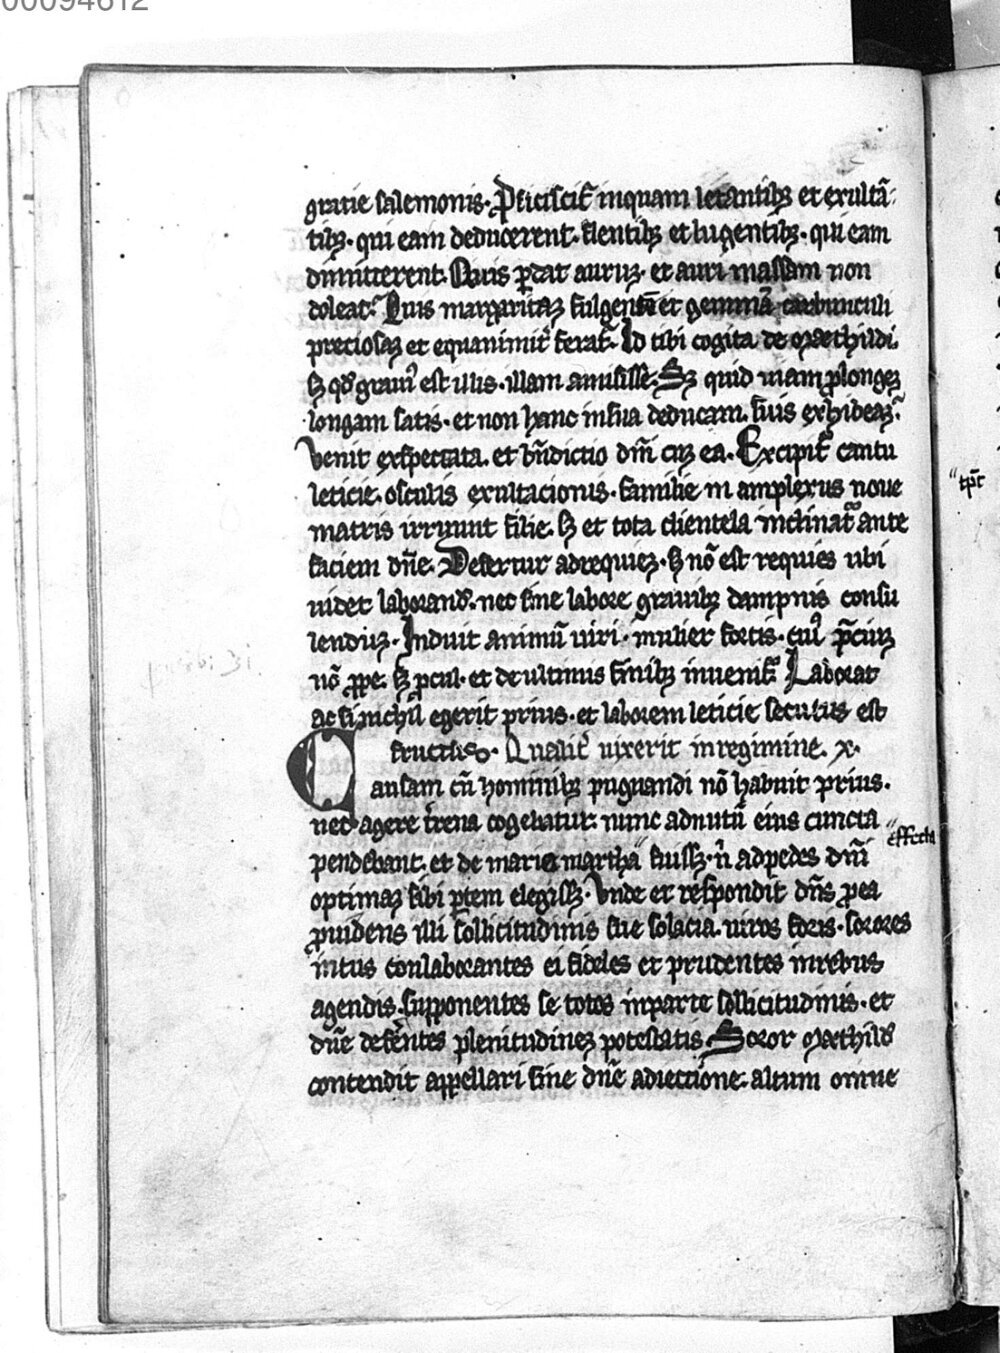 00094612
gratie salemonis. Proficiscit᷑ inquam letantibꝫ et exultā
tibꝫ. qui eam deducerent. flentibꝫ et lugentibꝫ. qui eam
dimitterent. Quis ꝑdat auruꝫ. et auri massam non
doleat. Quis margaritaꝫ fulgentē et gemmā carbunculi
preciosaꝫ et equanimit᷑ ferat. Id tibi cogita de Mæthildi.
sꝫ qd᷑ grauiꝰ est illis. illam amisisse. Sꝫ quid uiam ꝓlongeꝫ
longam satis. et non hanc in sua deducam.
Venit exspectata. et bn̄dictio dn̄i cuꝫ ea. Excipit᷑ cantu
leticie. osculis exultacionis. familie in amplexus noue
matris irruunt filie. sꝫ et tota clientela inclinat᷑ ante
faciem dn̄e. Defertur ad requieꝫ. sꝫ nō est requies ubi
uidet laborand᷑. nec sine labore grauibꝫ dampnis consu
lenduꝫ. Induit animū uiri. mulier fortis. cuiꝰ p̄ciuꝫ
nō ꝓpe. sꝫ ꝓcul. et de ultimis finibꝫ inuenit᷑. Laborat
ac si nichil egerit prius. et laborem leticie secutus est
fructus. Qualit᷑ uixerit in regimine. x.
Causam cū hominibꝫ pugnandi nō habuit prius.
nec agere t᷑rena cogebatur. nunc ad nutū eius cuncta
pendebant. et de maria martha fuisꝫ. n̄ ad pedes dn̄i
effecta
optimaꝫ sibi ꝑtem elegisꝫ. Vnde et respondit dn̄s ꝓ ea
ꝓuidens illi sollicitudinis sue solacia. uiros foris. sorores
intus conlaborantes ei fideles et prudentes in rebus
agendis. supponentes se totos in parte sollicitudinis. et
dn̄e defe᷑ntes plenitudineꝫ potestatis. Soror Mæthild᷑
contendit appellari sine dn̄e adiectione. altum omne
tp̄r